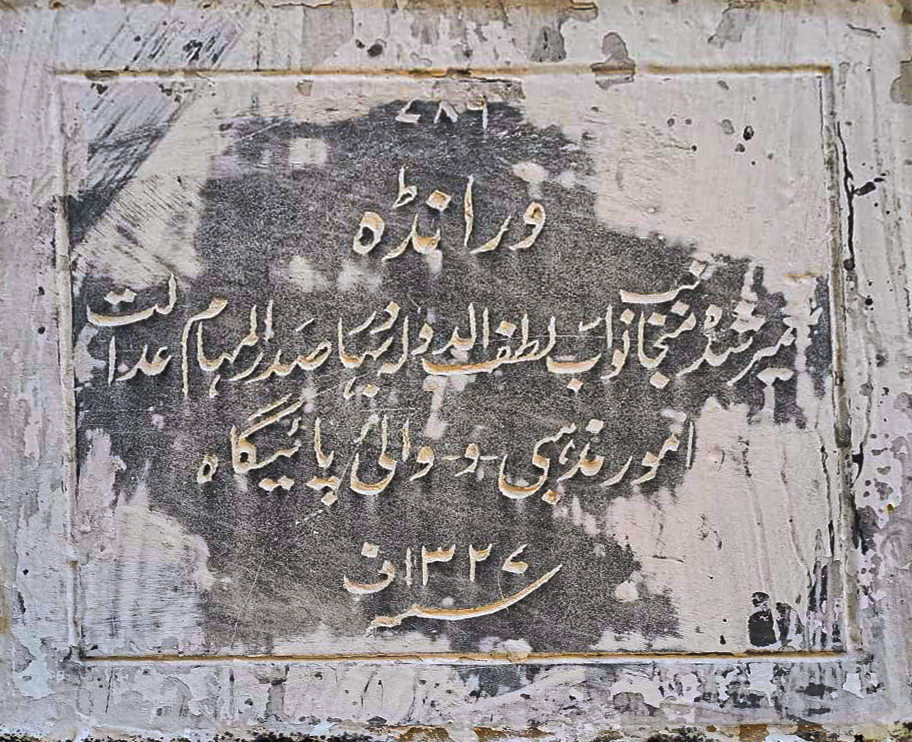 ۷۸۶
ورانڈہ
تعمیر شدہ منجانب نواب لطف الدولہ بہادر صدر المہام عدالت
امور مذہبی و والئ پائیگاہ
سنہ ۱۳۲۷ ف